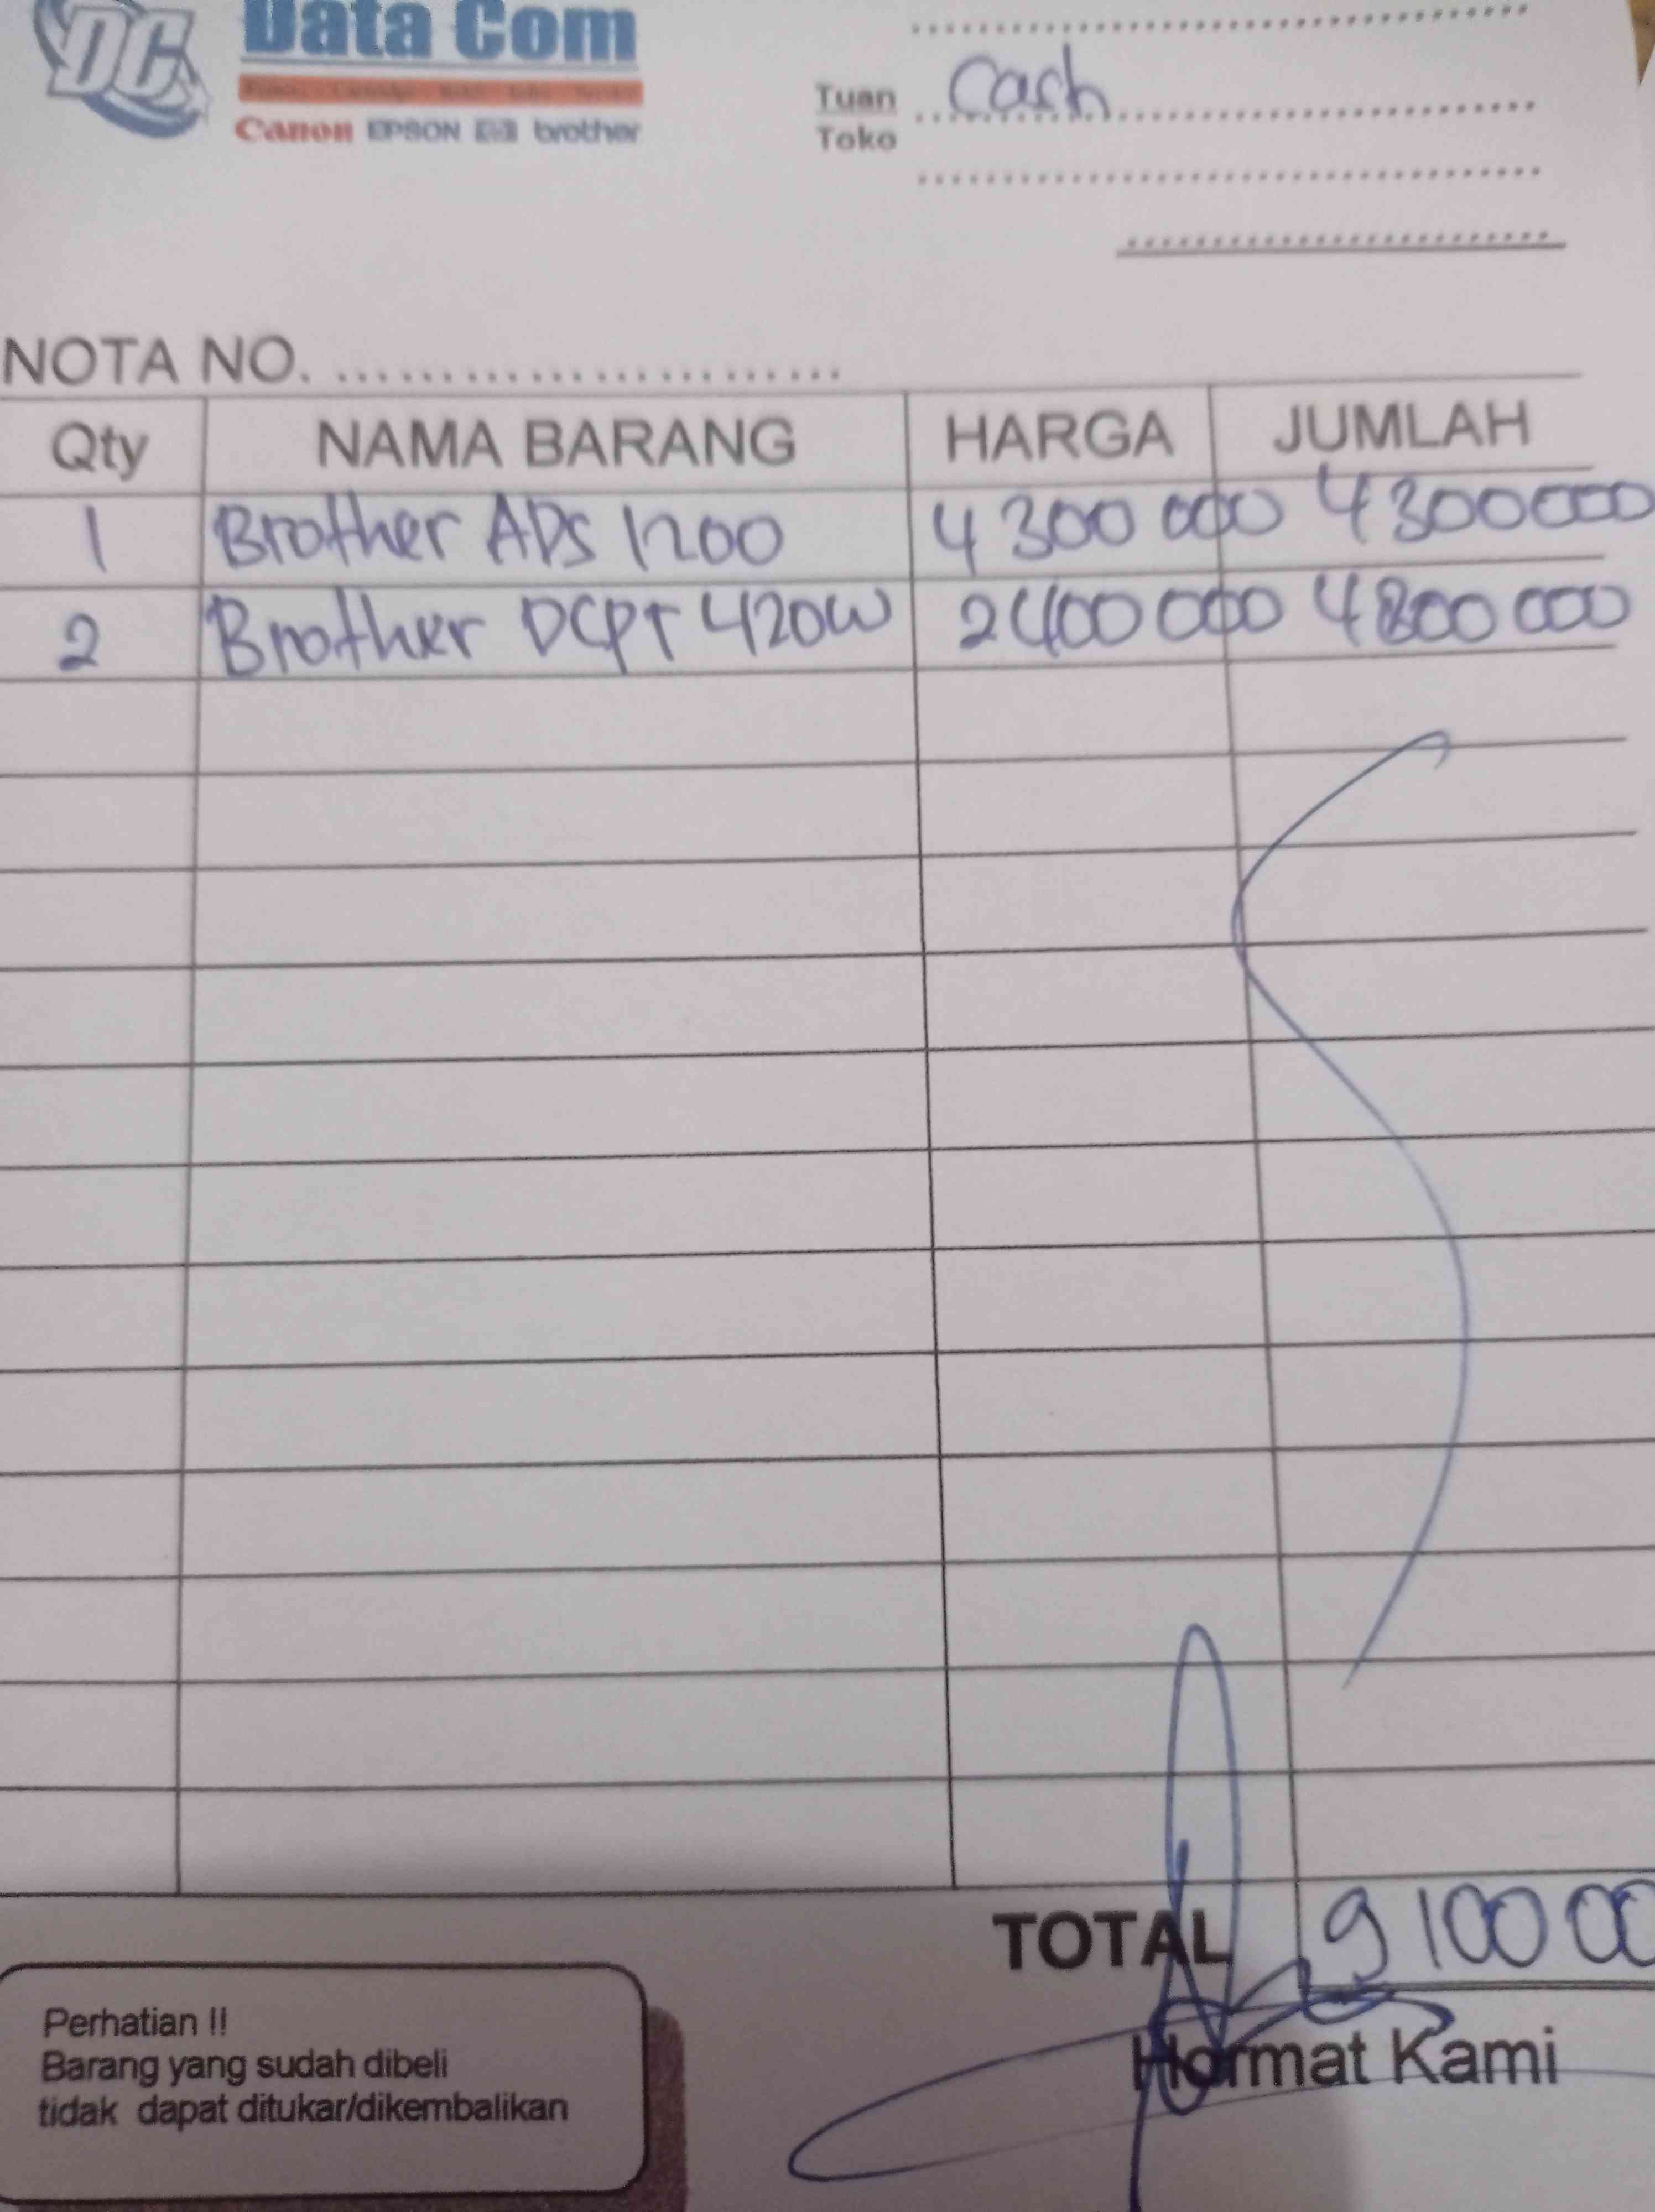 DC Data Com
Canon EPSON hp brother
Tuan Cash
Toko
NOTA NO.
Qty NAMA BARANG HARGA JUMLAH
1 Brother ADS 1200 4 300 000 4 300 000
2 Brother DCPT 420W 2 400 000 4 800 000
TOTAL 9 100 00
Hormat Kami
Perhatian !!
Barang yang sudah dibeli
tidak dapat ditukar/dikembalikan